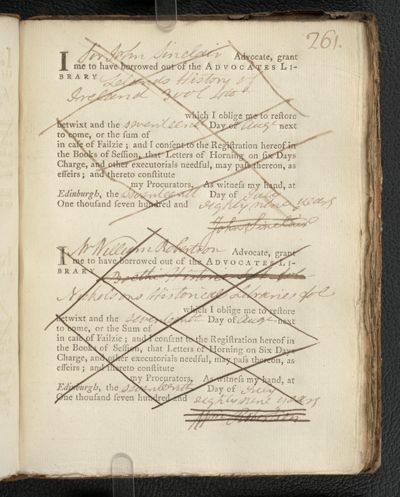 261.
I Sir John Sinclair Advocate, grant
me to have borrowed out of the ADVOCATES LI-
BRARY Leland's History of
Ireland 3 vol 4to
which I oblige me to restore
betwixt and the seventeenth Day of Augt next
to come, or the sum of
in case of Failzie; and I consent to the Registration hereof in
the Books of Session, that Letters of Horning on six Days
Charge, and other executorials needful, may pass thereon, as
effeirs; and thereto constitute
my Procurators. As witness my hand, at
Edinburgh, the seventeenth Day of July
One thousand seven hundred and eighty nine years
John Sinclair
I Mr William Robertson Advocate, grant
me to have borrowed out of the ADVOCATES LI-
BRARY
Nicholson's Historical Libraries fol
which I oblige me to restore
betwixt and the seventeenth Day of Augt next
to come, or the Sum of
in case of Failzie; and I consent to the Registration hereof in
the Books of Session, that Letters of Horning on Six Days
Charge, and other executorials needful, may pass thereon, as
effeirs; and thereto constitute
my Procurators. As witness my hand, at
Edinburgh, the seventeenth Day of July
One thousand seven hundred and eighty nine years
Robertson